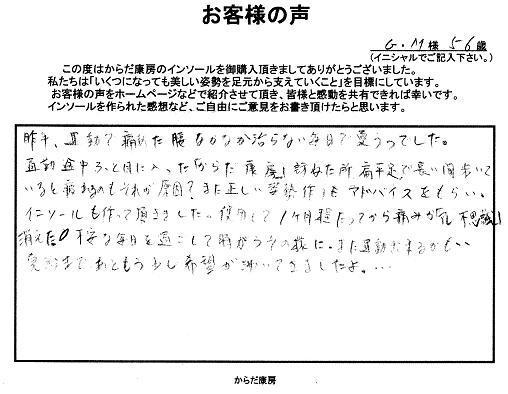 お客様の声
G.M様 56歳
(イニシャルでご記入下さい。)
この度はからだ康房のインソールを御購入頂きましてありがとうございました。
私たちは「いくつになっても美しい姿勢を足元から支えていくこと」を目標にしています。
お客様の声をホームページなどで紹介させて頂き、皆様と感動を共有できれば幸いです。
インソールを作られた感想など、ご自由にご意見をお書き頂けたらと思います。
昨年、運動で痛めた膝なかなか治らない毎日で憂うつでした。
運動途中ふと目に入った「からだ康房」訪ねた所 扁平足で長い間歩いて
いると疲れるのもそれが原因? また正しい姿勢作りもアドバイスをもらい。
インソールも作って頂きました。使用して1ヶ月程たってから痛みが 不思議!
消えた 不安な毎日を過ごして がうその様に。また運動出来るかも…
完治まであともう少し希望が沸いてきましたよ。…
からだ康房